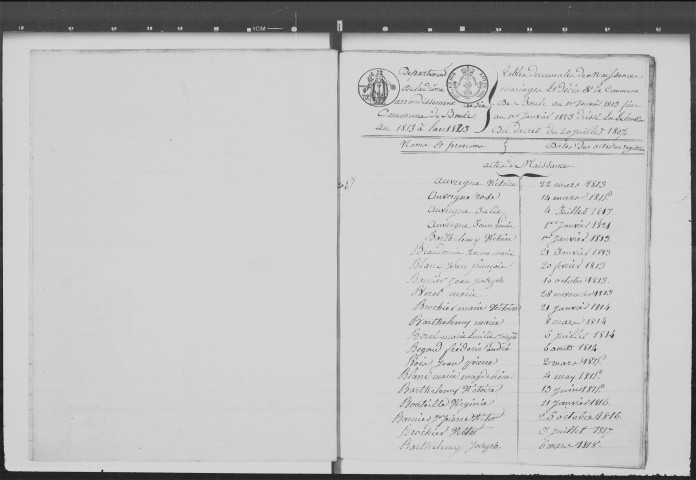 1CM
Département
De la Drôme
arrondissement de Die
Commune de Boulc
an 1813 à l'an 1823
tables decennales de Naissance
mariages et Décès de la Commune
De Boulc du 1er Janvier 1813 fixée
au 1er Janvier 1823 dressé en
Du decret du 20 juillet 1807
Noms et prenoms
Dates des actes
actes de Naissance
Auvergne Victoire 22 mars 1813
Auvergne rose 14 mars 1815
Auvergne Julie 4 Juillet 1817
Auvergne Jean Louis 1er Janvier 1821
Barthelemy Victoire 1er Janvier 1813
marie 21 Janvier 1813
Blanc Jean françois 20 fevrier 1813
Jean Joseph 10 octobre 1813
Borel marie 28 novembre 1813
Brochier marie Victoire 21 janvier 1814
Barthelemy marie 8 mars 1814
Borel marie 6 juillet 1814
Begoud fréderic andré 6 aout 1814
Bois Jean pierre 2 mars 1815
Blanc marie magdeleine 4 may 1815
Barthelemy Victoire 13 juin 1815
Bouteille Virginie 11 Janvier 1816
pierre Victor 26 octobre 1816
Brochier Victor juillet 1817
Barthelemy Joseph 6 mars 1818